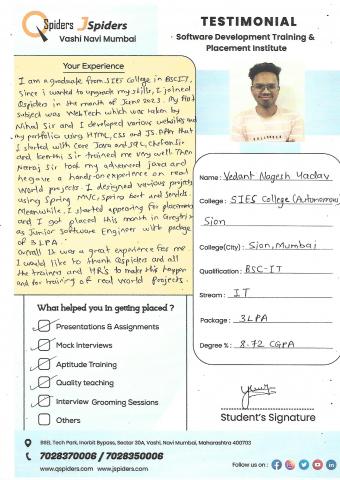 QSpiders JSpiders
Vashi Navi Mumbai
TESTIMONIAL
Software Development Training &
Placement Institute
Your Experience
I am a graduate from SIES College in BSCIT,
Since i wanted to upgrade my skills, I joined
Qspiders in the month of June 2023. My first
subject was WebTech which was taken by
Nihal Sir and I developed various websites and
my portfolio using HTML, CSS and JS. After that
I started with Core Java and SQL,
and sir trained me very well. Then
Neeraj Sir took my advanced java and
he gave a hands-on experience on real
World projects. I designed various projects
using Spring MVC, Spring boot and Servlets.
Meanwhile, I started appearing for placements
and I got placed this month in
as Junior Software Engineer with package
of 3LPA.
Overall It was a great experience for me
I would like to thank Qspiders and all
the trainers and HR's to make this happen
and for training of real world projects.
Name: Vedant Nagesh Yadav
College: SIES College (Autonomous)
Sion
College(City): Sion, Mumbai
Qualification: BSC-IT
Stream: IT
Package: 3LPA
Degree %: 8.72 CGPA
What helped you in getting placed ?
Presentations & Assignments
Mock Interviews
Aptitude Training
Quality teaching
Interview Grooming Sessions
Others
Student's Signature
BSEL Tech Park, Inorbit Bypass, Sector 30A, Vashi, Navi Mumbai, Maharashtra 400703
7028370006 / 7028350006
www.qspiders.com www.jspiders.com
Follow us on :